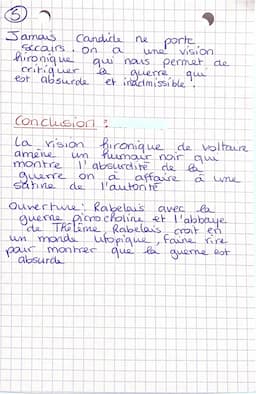 5
Jamais Candide ne porte
secours. On a une vision
hironique qui nous permet de
critiquer la guerre qui
est absurde et inadmissible.
Conclusion :
La vision hironique de voltaire
amène un humour noir qui
montre l'absurdité de la
guerre on a affaire à une
satire de l'autorité
Ouverture: Rabelais avec la
guerre picrocholine et l'abbaye
de Thélème, Rabelais croit en
un monde utopique, faire rire
pour montrer que la guerre est
absurde